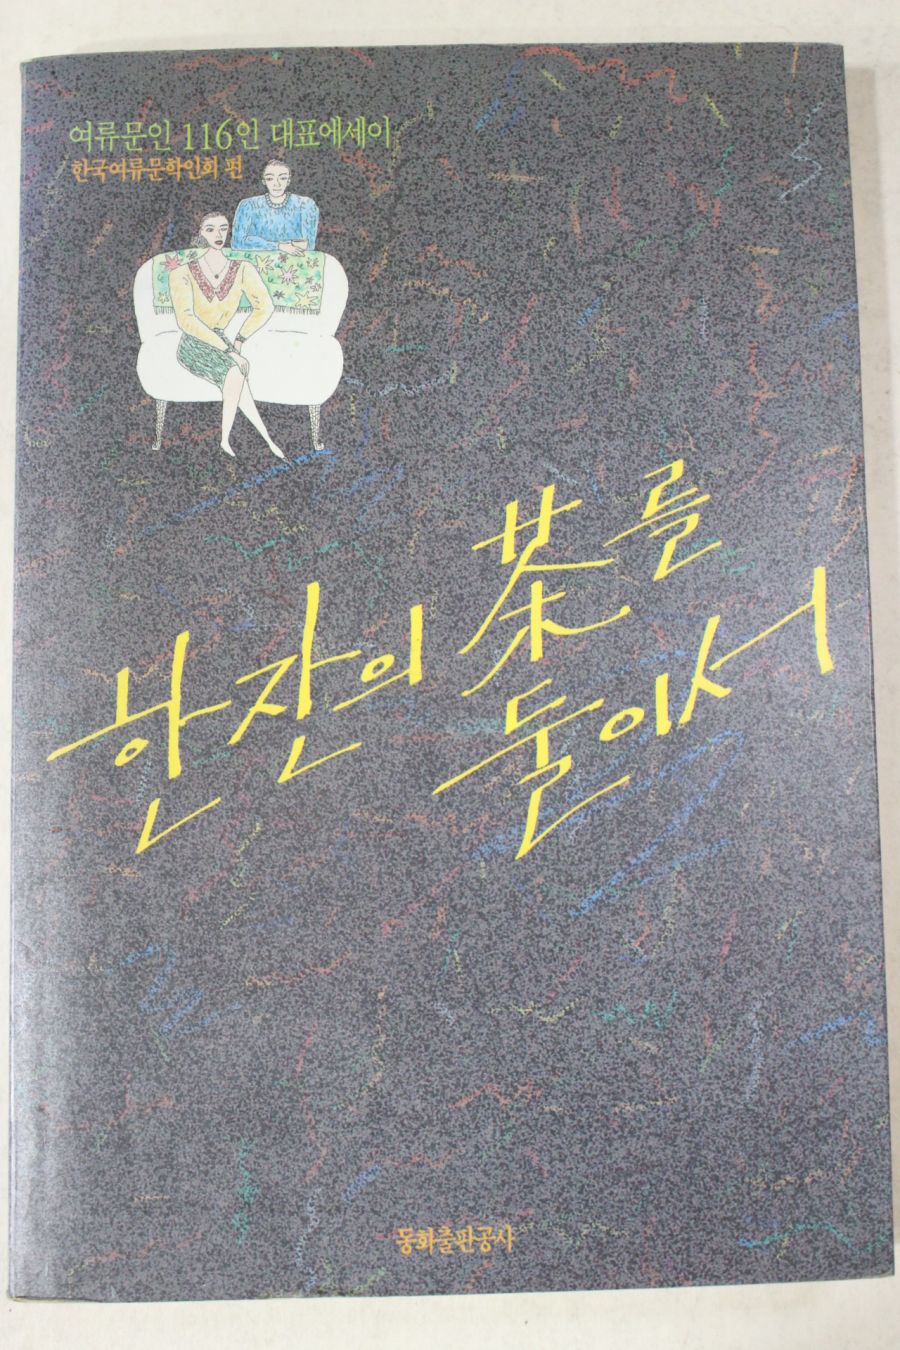 여류문인 116인 대표에세이
한국여류문학인회 편
한잔의 茶를
둘이서
동화출판공사